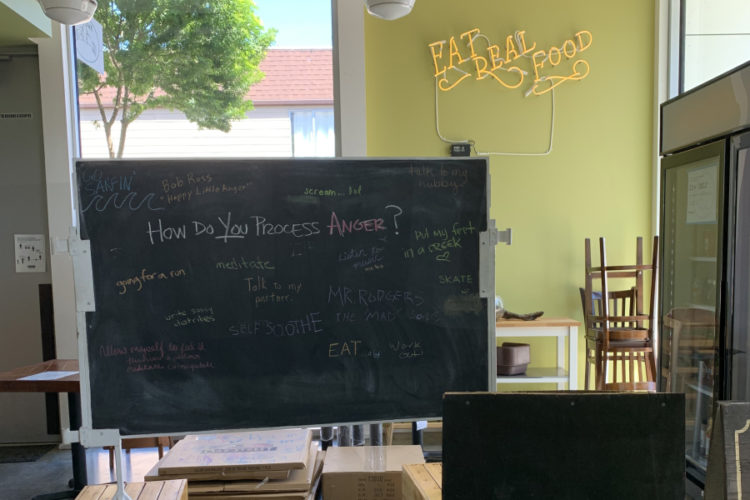 EAT REAL FOOD
GO
SURFIN'
Bob Ross
"Happy Little Anger"
scream...
Talk to my
hubby
HOW DO YOU PROCESS ANGER?
Put my feet
in a creek
going for a run
meditate
Listen to
music
Talk to my
partner.
SKATE
MR. RODGERS
THE MAD SONG
write sorry
SELF SOOTHE
Allow myself to feel it
EAT
Work
out!